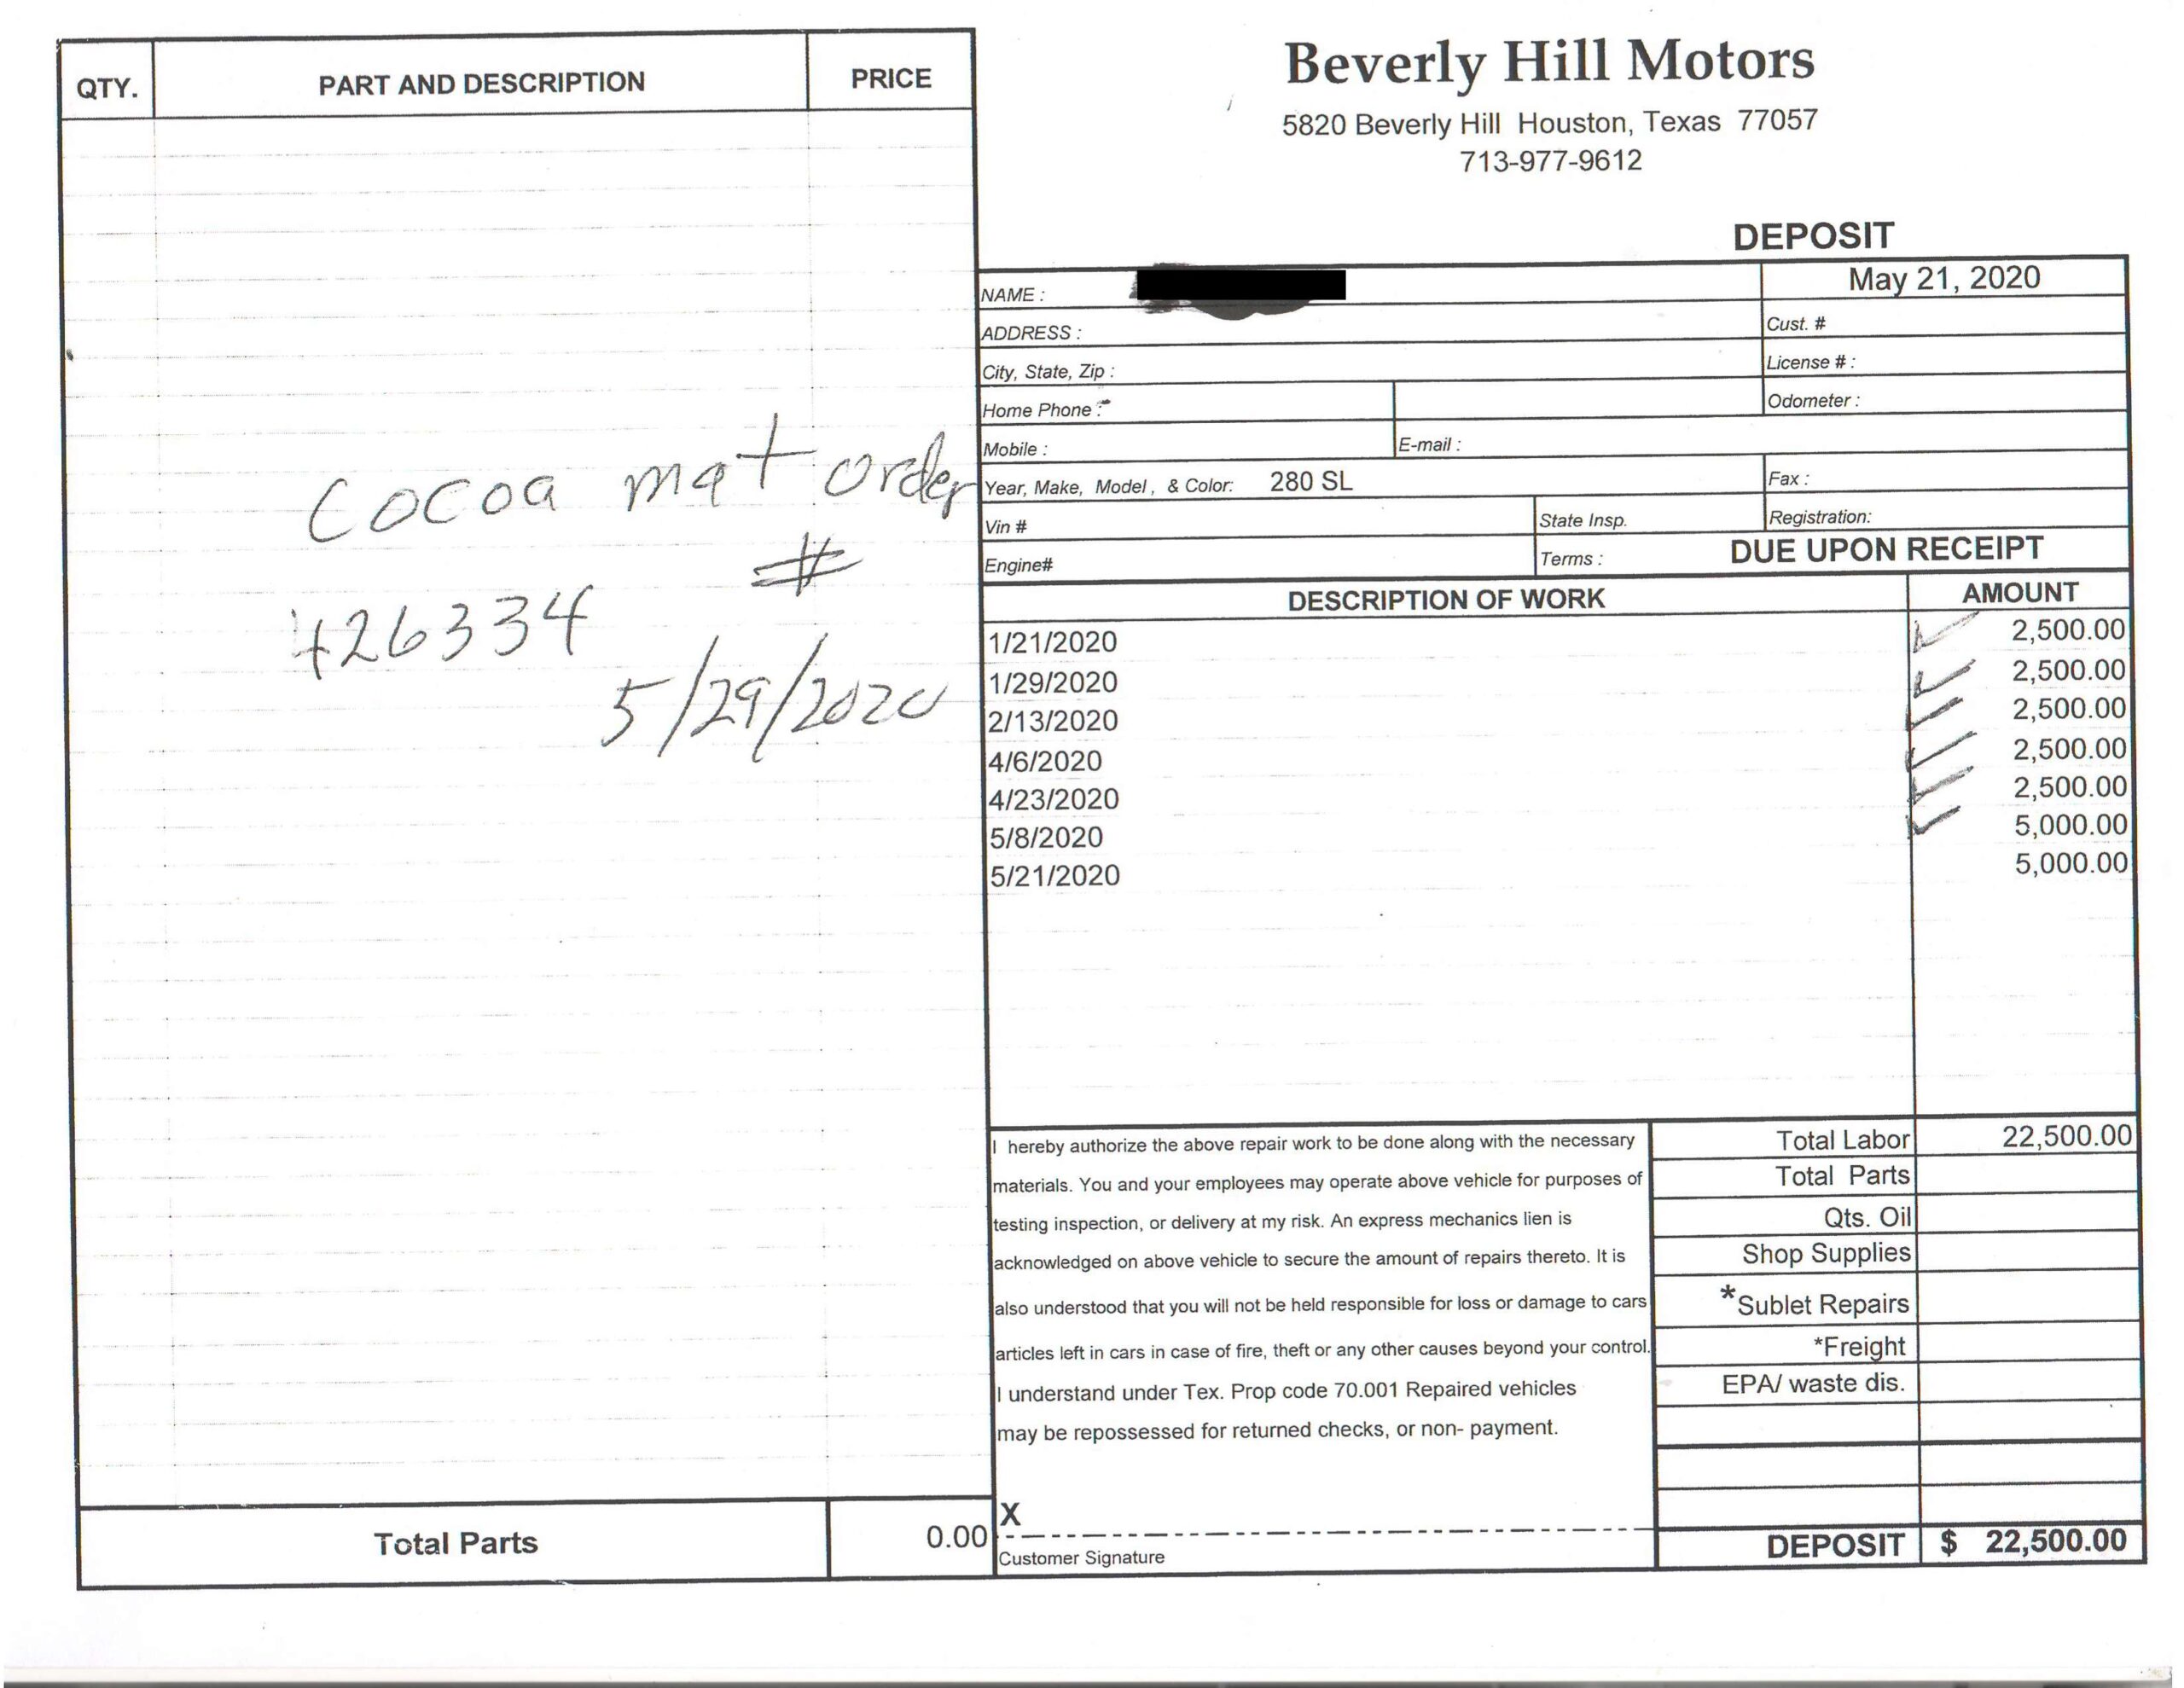 QTY. PART AND DESCRIPTION PRICE
Cocoa mat order
#
426334
5/29/2020
Total Parts 0.00
Beverly Hill Motors
5820 Beverly Hill Houston, Texas 77057
713-977-9612
DEPOSIT
NAME : May 21, 2020
ADDRESS : Cust. #
City, State, Zip : License # :
Home Phone : Odometer :
Mobile : E-mail :
Year, Make, Model, & Color: 280 SL Fax :
Vin # State Insp. Registration:
Engine# Terms : DUE UPON RECEIPT
DESCRIPTION OF WORK AMOUNT
1/21/2020 2,500.00
1/29/2020 2,500.00
2/13/2020 2,500.00
4/6/2020 2,500.00
4/23/2020 2,500.00
5/8/2020 5,000.00
5/21/2020 5,000.00
I hereby authorize the above repair work to be done along with the necessary
materials. You and your employees may operate above vehicle for purposes of
testing inspection, or delivery at my risk. An express mechanics lien is
acknowledged on above vehicle to secure the amount of repairs thereto. It is
also understood that you will not be held responsible for loss or damage to cars
articles left in cars in case of fire, theft or any other causes beyond your control.
I understand under Tex. Prop code 70.001 Repaired vehicles
may be repossessed for returned checks, or non- payment.
X
Customer Signature
Total Labor 22,500.00
Total Parts
Qts. Oil
Shop Supplies
*Sublet Repairs
*Freight
EPA/ waste dis.
DEPOSIT $ 22,500.00